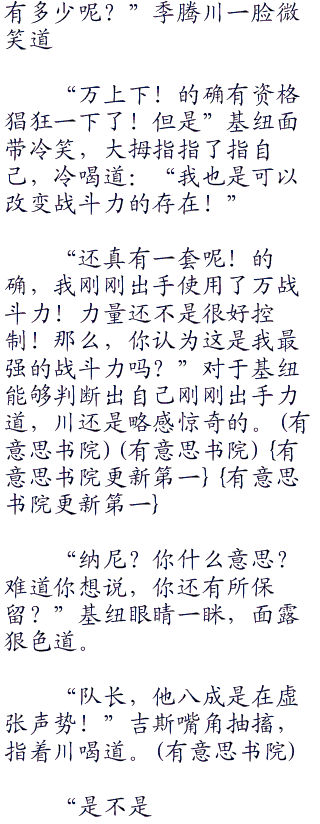 有多少呢？”季腾川一脸微
笑道
“万上下！的确有资格
猖狂一下了！但是”基纽面
带冷笑，大拇指指了指自
己，冷喝道：“我也是可以
改变战斗力的存在！”
“还真有一套呢！的
确，我刚刚出手使用了万战
斗力！力量还不是很好控
制！那么，你认为这是我最
强的战斗力吗？”对于基纽
能够判断出自己刚刚出手力
道，川还是略感惊奇的。(有
意思书院)(有意思书院){有
意思书院更新第一}{有意思
书院更新第一}
“纳尼？你什么意思？
难道你想说，你还有所保
留？”基纽眼睛一眯，面露
狠色道。
“队长，他八成是在虚
张声势！”吉斯嘴角抽搐，
指着川喝道。(有意思书院)
“是不是